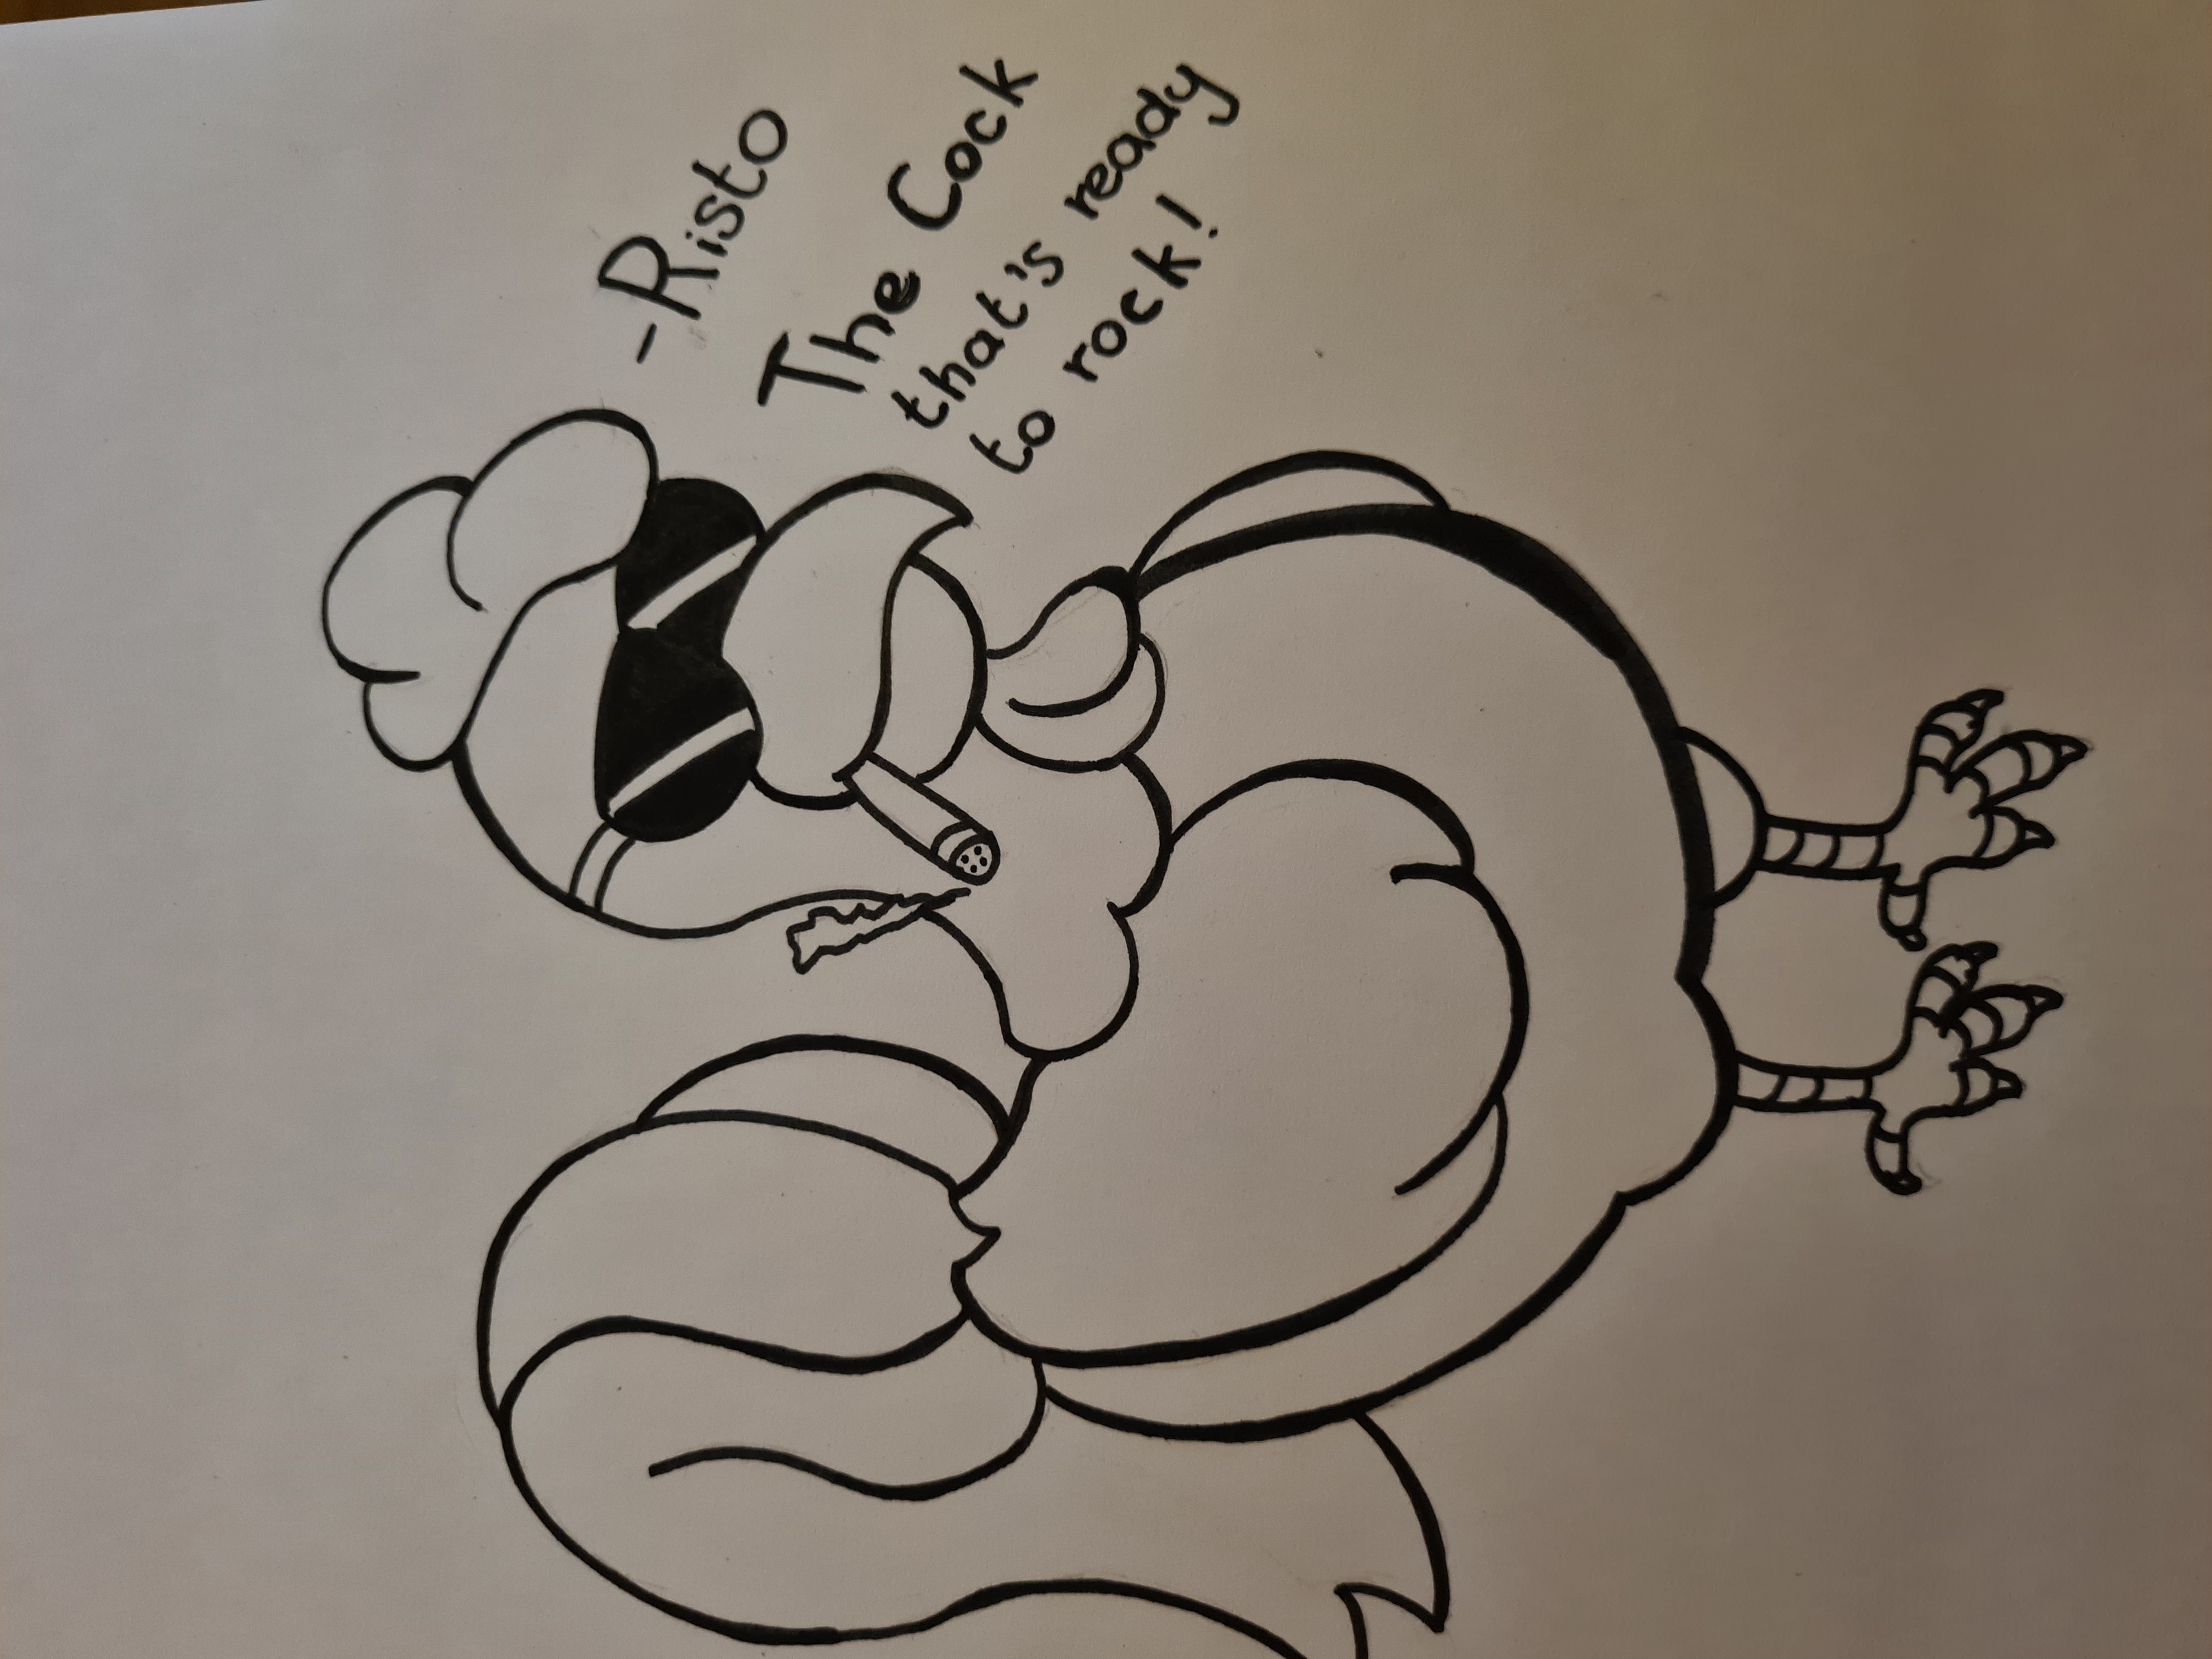 -Risto
The Cock
that's ready
to rock!